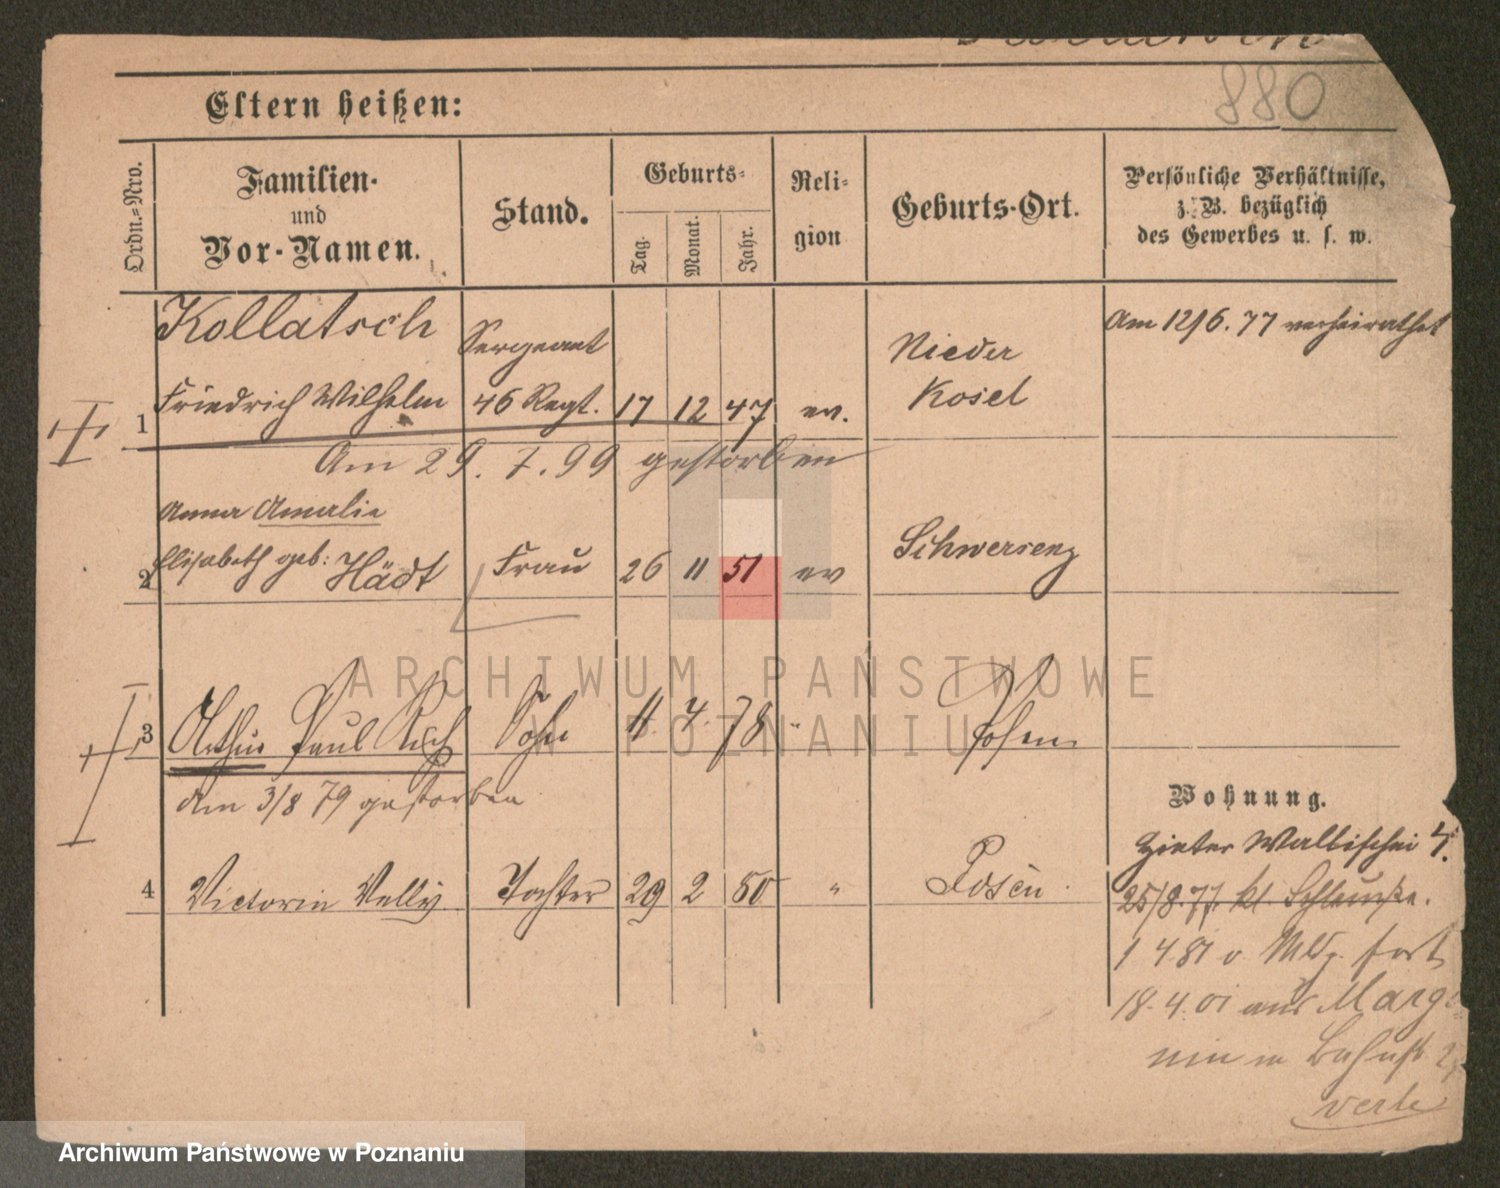 880
Eltern heißen:
Ordn.=Nro.
Familien-
und
Vor-Namen.
Stand.
Geburts=
Tag.
Monat.
Jahr.
Reli=
gion
Geburts-Ort.
Persönliche Verhältnisse,
z. B. bezüglich
des Gewerbes u. s. w.
Kollatsch
Friedrich Wilhelm
Sergeant
46 Regt.
1
17 12 47 ev.
Nieder
Kosel
Am 12/6. 77 verheirathet
Am 29. 7. 99 gestorben
Anna Amalie
Elisabeth geb: Hädt
2
Frau 26 11 51 ev
Schwersenz
ARCHIWUM PAŃSTWOWE
W POZNANIU
3 Arthur Paul Sohn 11. 4. 78 " Posen
am 3/8 79 gestorben
4 Victoria Nelly Tochter 29 2 80 " Posen
Wohnung.
Hinter Wallischei 4.
25/8. 77. kl.
1 4 81 v. fort
18. 4. 01 aus Margo
nin
Archiwum Państwowe w Poznaniu